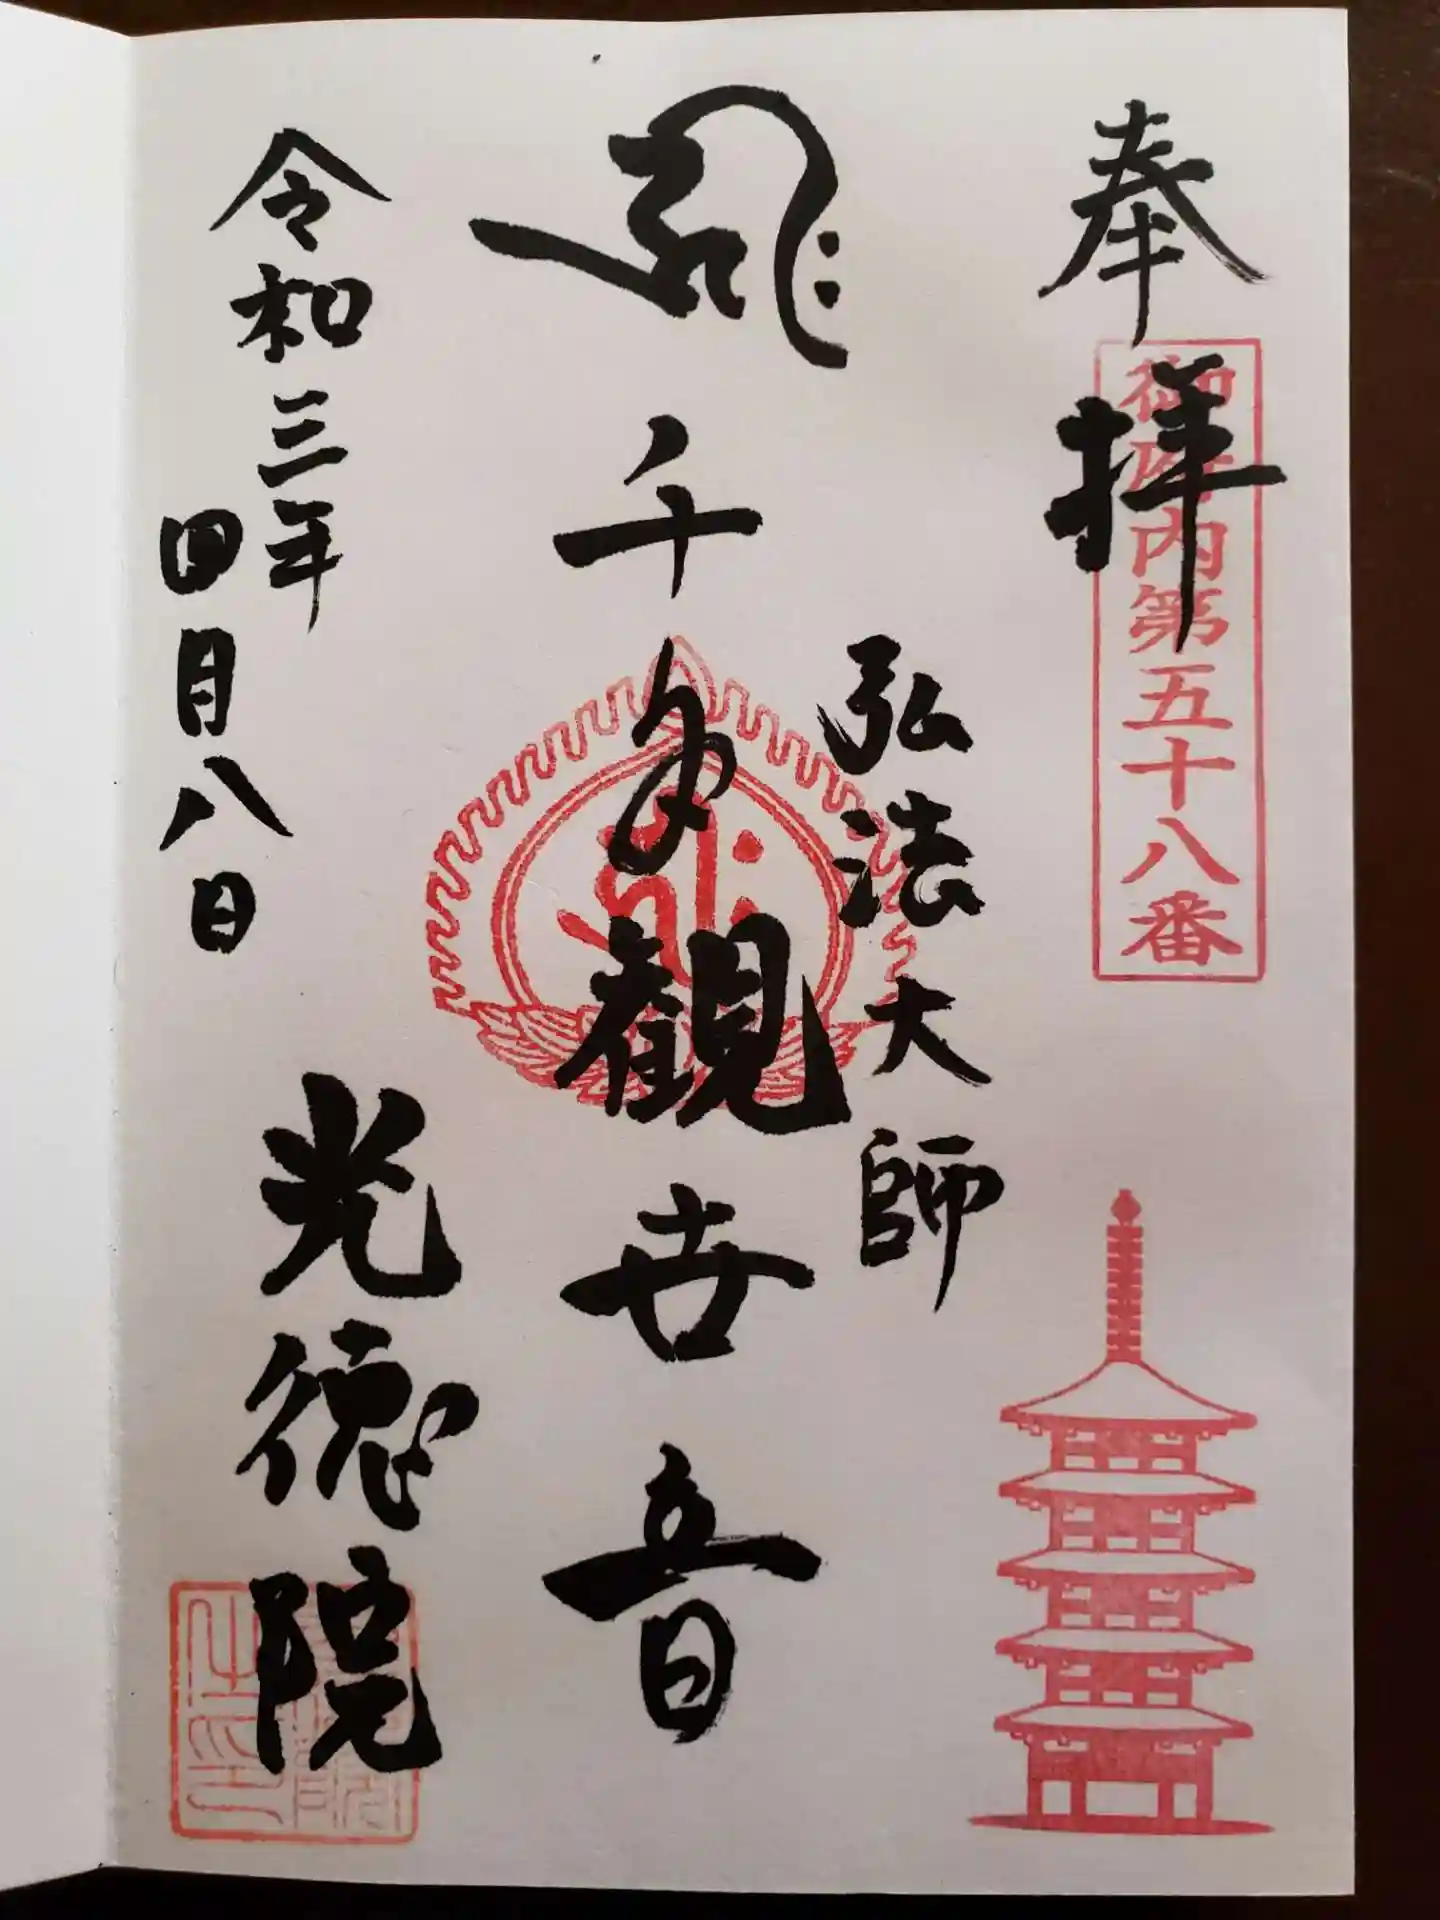 奉拝
御府内第五十八番
弘法大師
千手観世音
令和三年
四月八日
光徳院